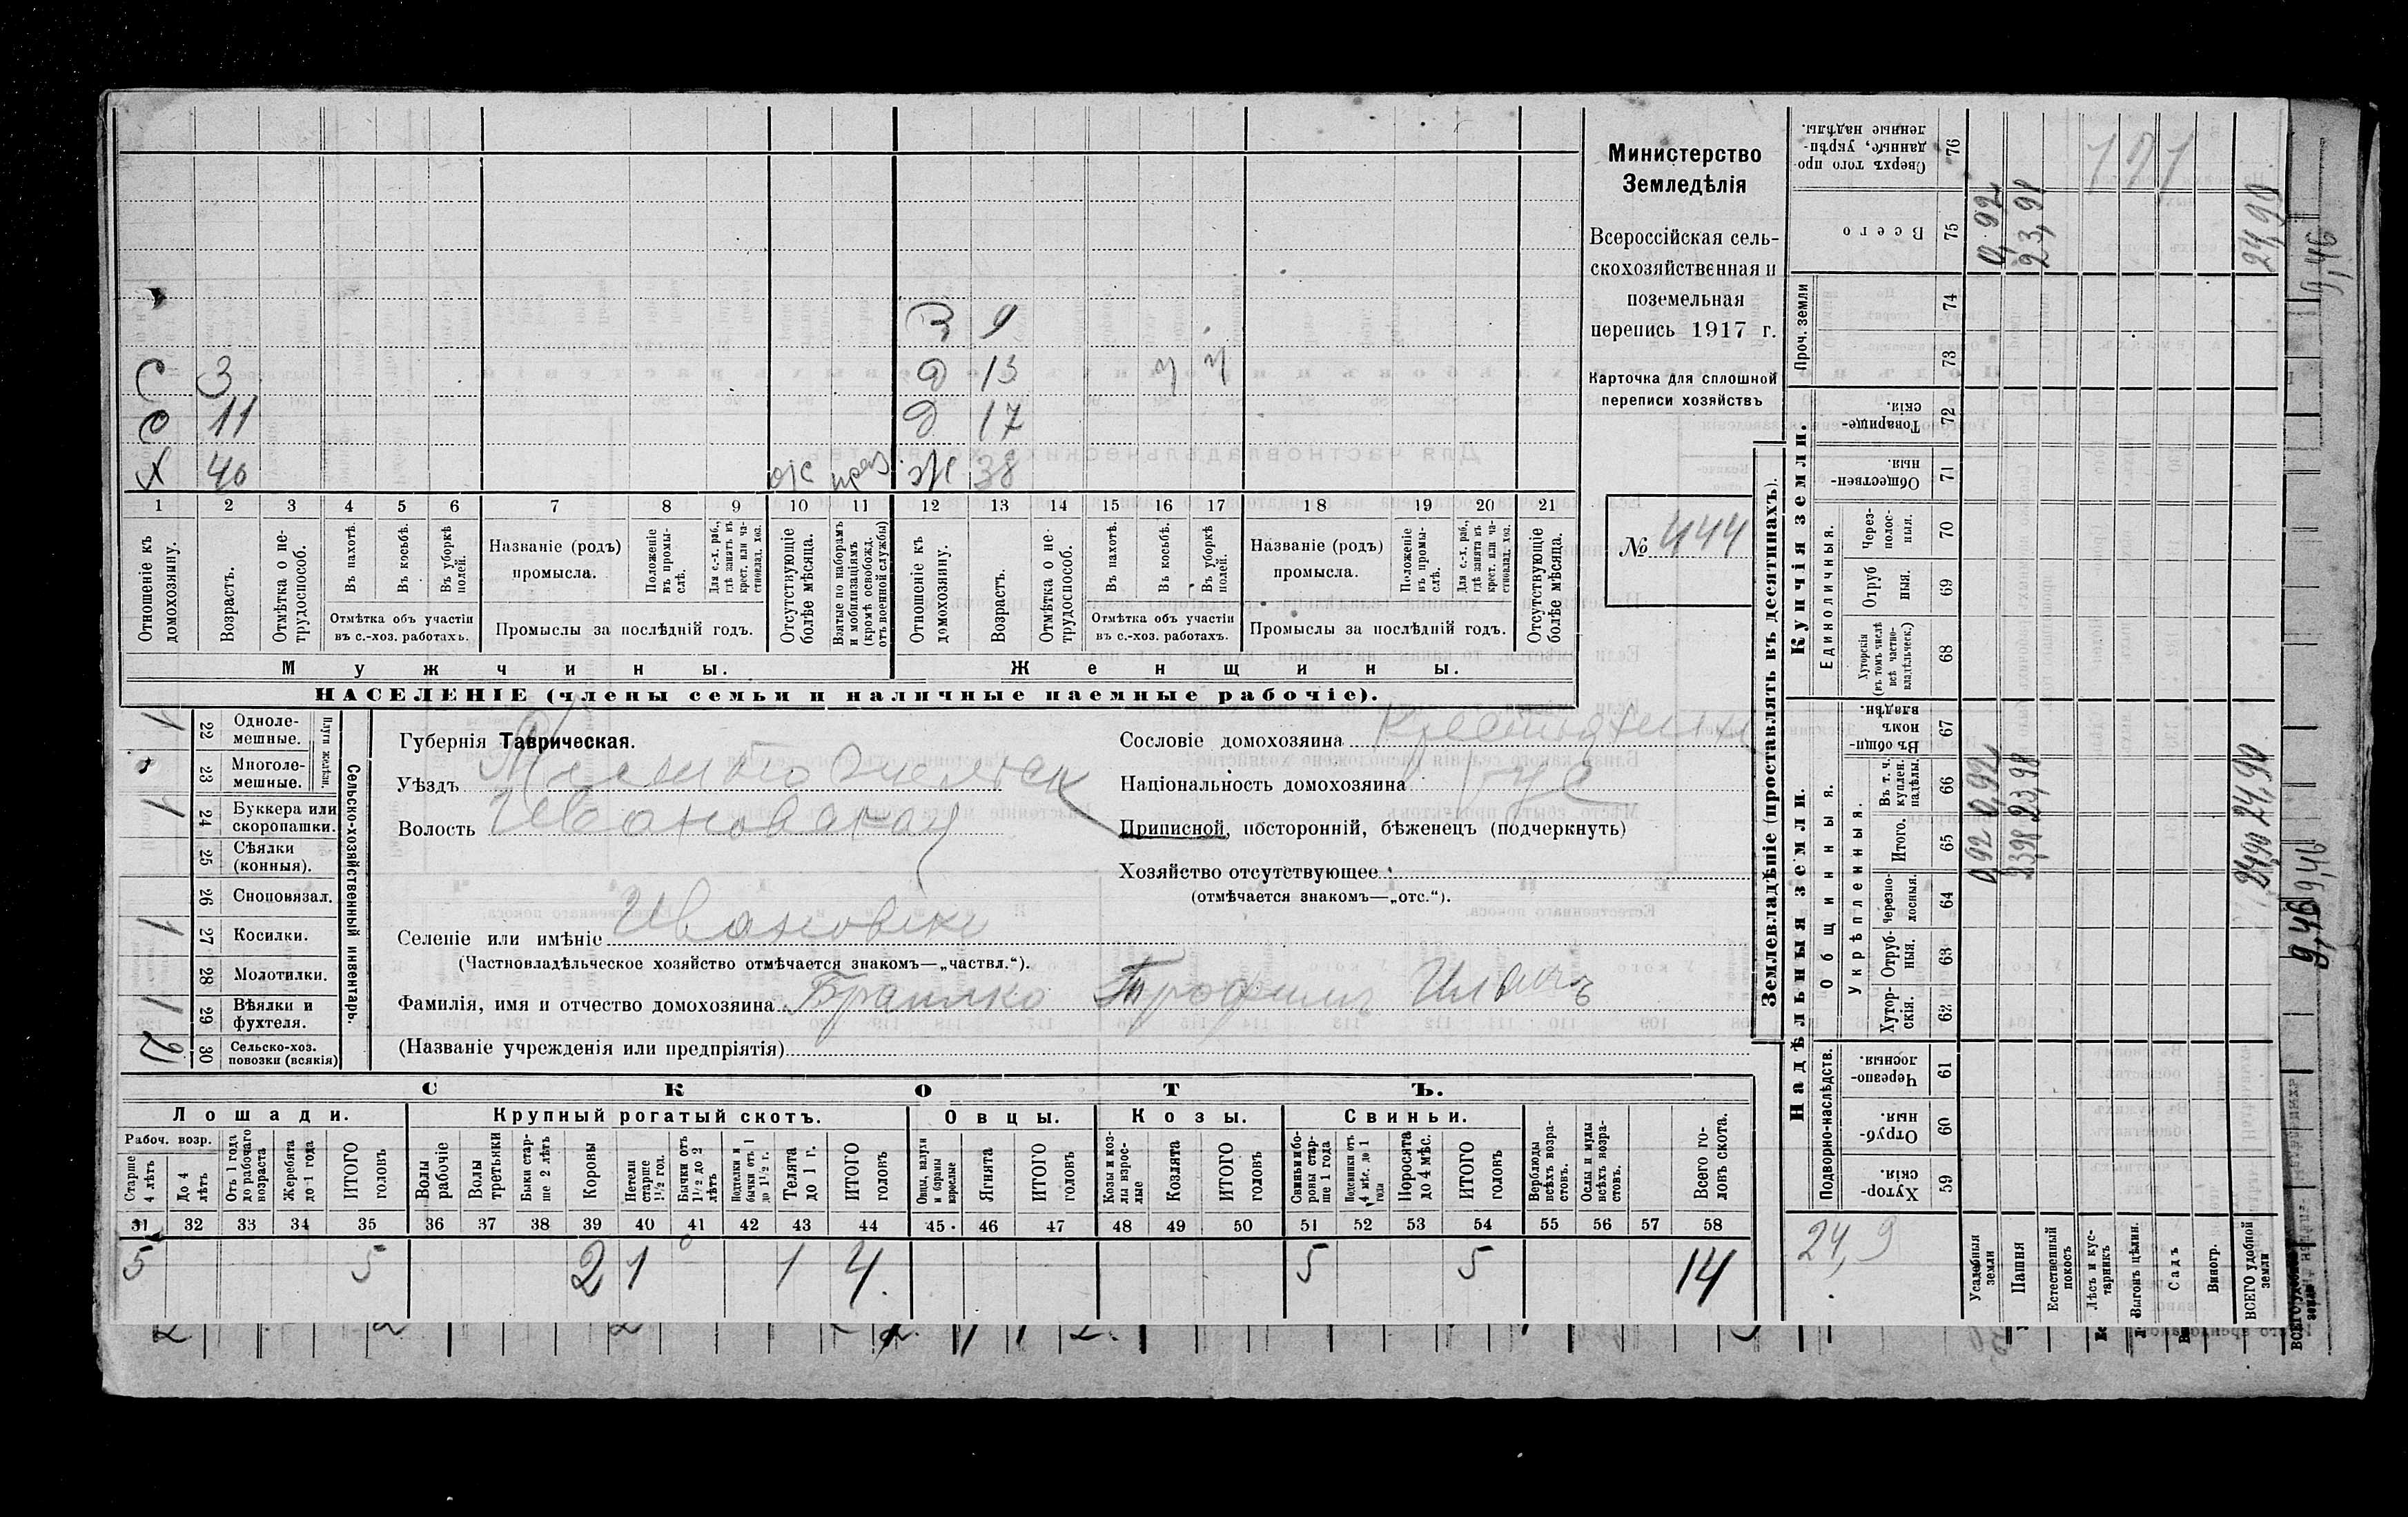 Министерство
Земледѣлія
Всероссійская сель-
скохозяйственная и
поземельная
перепись 1917 г.
Карточка для сплошной
переписи хозяйствъ
№ 444
В 9
С 3 Д 13 ч ч
С 11 Д 17
Х 40 Ж 38
1 2 3 4 5 6 7 8 9 10 11 12 13 14 15 16 17 18 19 20 21
Отношеніе къ домохозяину.
Возрастъ.
Отмѣтка о не-трудоспособ.
Въ пахотѣ.
Въ косьбѣ.
Въ уборкѣ полей.
Отмѣтка объ участіи
въ с.-хоз. работахъ.
Названіе (родъ)
промысла.
Положеніе въ промы-слѣ.
Для с.-х. раб., гдѣ занятъ въ крест. или ча-стновлад. хоз.
Промыслы за послѣдній годъ.
Отсутствующіе болѣе мѣсяца.
Взятые по наборамъ и мобилизаціямъ (кромѣ освобожд. отъ военной службы)
Отношеніе къ домохозяину.
Возрастъ.
Отмѣтка о не-трудоспособ.
Въ пахотѣ.
Въ косьбѣ.
Въ уборкѣ полей.
Отмѣтка объ участіи
въ с.-хоз. работахъ.
Названіе (родъ)
промысла.
Положеніе въ промы-слѣ.
Для с.-х. раб., гдѣ занята въ крест. или ча-стновлад. хоз.
Промыслы за послѣдній годъ.
Отсутствующіе болѣе мѣсяца.
Мужчины.
Женщины.
НАСЕЛЕНІЕ (члены семьи и наличные наемные рабочіе).
Сельско-хозяйственный инвентарь.
Плуги желѣзн.
1 22 Одноле-мешные.
23 Многоле-мешные.
1 24 Буккера или скоропашки.
25 Сѣялки (конныя).
26 Сноповязал.
1 27 Косилки.
28 Молотилки.
1 29 Вѣялки и фухтеля.
2 30 Сельско-хоз. повозки (всякія)
Губернія Таврическая.
Уѣздъ Мелитопольск
Волость Ивановская
Селеніе или имѣніе Ивановка
(Частновладѣльческое хозяйство отмѣчается знакомъ—„частвл.“).
Фамилія, имя и отчество домохозяина Браилко Трофимъ Ильичъ
(Названіе учрежденія или предпріятія)
Сословіе домохозяина Крестьянинъ
Національность домохозяина Рус
Приписной, посторонній, бѣженецъ (подчеркнуть)
Хозяйство отсутствующее
(отмѣчается знакомъ—„отс.“).
СКОТЪ.
Лошади.
Крупный рогатый скотъ.
Овцы.
Козы.
Свиньи.
Рабоч. возр.
Старше 4 лѣтъ
До 4 лѣтъ
Отъ 1 года до рабочаго возраста
Жеребята до 1 года
ИТОГО головъ
Волы рабочіе
Волы третьяки
Быки стар-ше 2 лѣтъ
Коровы
Нетели старше 1½ год.
Бычки отъ 1½ до 2 лѣтъ
Подтелки и бычки отъ 1 до 1½ г.
Телята до 1 г.
ИТОГО головъ
Овцы, валухи и бараны взрослые
Ягнята
ИТОГО головъ
Козы и коз-лы взрос-лые
Козлята
ИТОГО головъ
Свиньи и бо-роны стар-ше 1 года
Подсвинки отъ 4 мѣс. до 1 года
Поросята до 4 мѣс.
ИТОГО головъ
Верблюды всѣхъ возра-стовъ.
Ослы и мулы всѣхъ возра-стовъ.
Всего го-ловъ скота.
31 32 33 34 35 36 37 38 39 40 41 42 43 44 45 46 47 48 49 50 51 52 53 54 55 56 57 58
5 5 2 1 1 4 5 5 14
Землевладѣніе (проставлять въ десятинахъ).
Надѣльныя земли.
Купчія земли.
Проч. земли
Подворно-наслѣдств.
Общинныя.
Укрѣпленныя.
Единоличныя.
Хутор-скія. 59
Отруб-ныя. 60
Черезпо-лосныя. 61
Хутор-скія. 62
Отруб-ныя. 63
Черезпо-лосныя. 64
Итого. 65
Въ т. ч. куплен. надѣлы. 66
Въ общи-номъ владѣн. 67
Хуторскія (въ томъ числѣ всѣ частно-владѣльческ.) 68
Отруб ныя. 69
Через-полос-ныя. 70
Обществен-ныя. 71
Товарище-скія. 72
73
74
Всего 75
Сверхъ того про-данные, укрѣп-ленные надѣлы. 76
24,9
Усадебныя земли 0,92 0,92 0,92
Пашня 23,98 23,98 23,98
Естественный покосъ
Лѣсъ и кус-тарникъ
Выгонъ цѣлин.
Садъ
Виногр.
ВСЕГО удобной земли 24,90 24,90 24,90
171
9,46
9,46 9,46